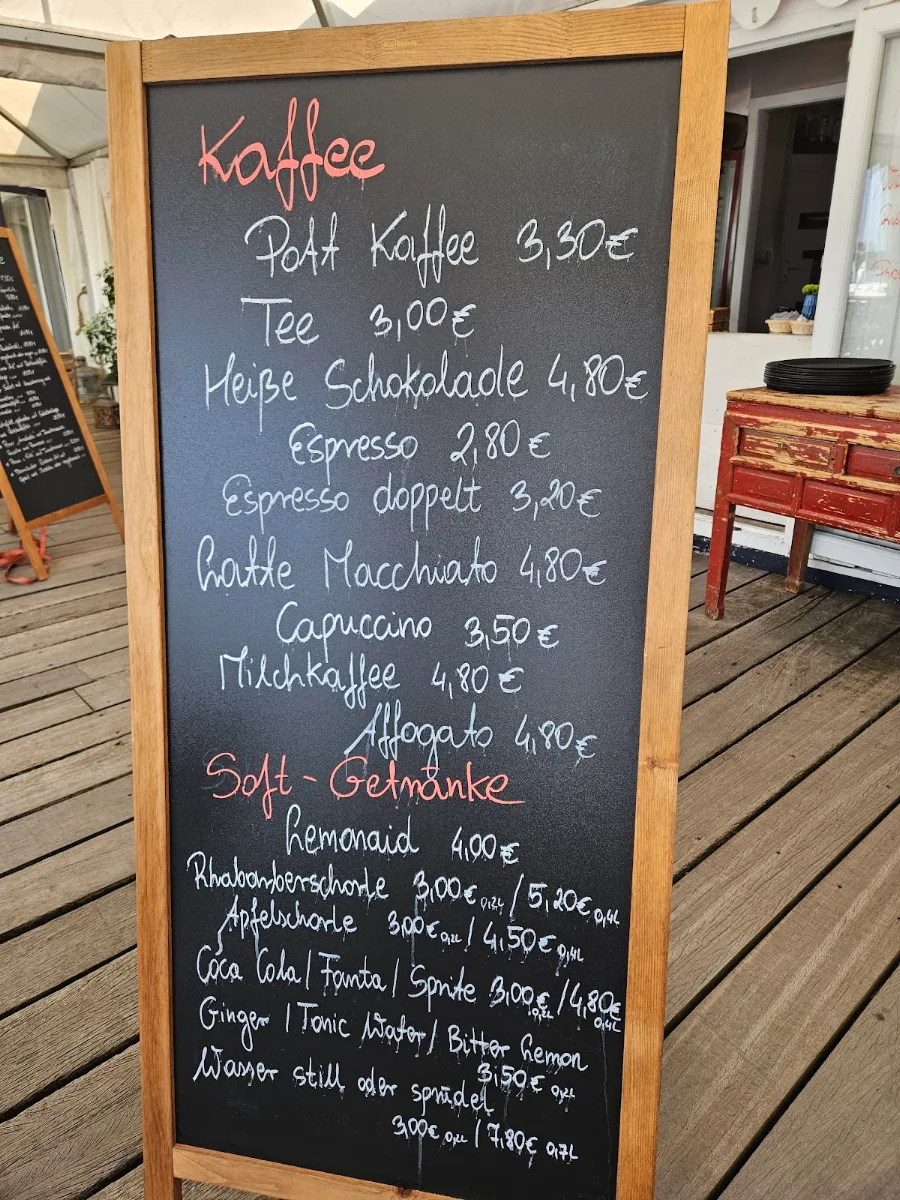 Kaffee
Pott Kaffee 3,30€
Tee 3,00€
Heiße Schokolade 4,80€
Espresso 2,80€
Espresso doppelt 3,20€
Latte Macchiato 4,80€
Capuccino 3,50€
Milchkaffee 4,80€
Affogato 4,80€
Soft-Getränke
Lemonaid 4,00€
Rhabarberschorle 3,00€ 0,2L / 5,20€ 0,4L
Apfelschorle 3,00€ 0,2L / 4,50€ 0,4L
Coca Cola / Fanta / Sprite 3,00€ 0,2L / 4,80€ 0,4L
Ginger / Tonic Water / Bitter Lemon
3,50€ 0,2L
Wasser still oder sprudel
3,00€ 0,2L / 7,80€ 0,7L